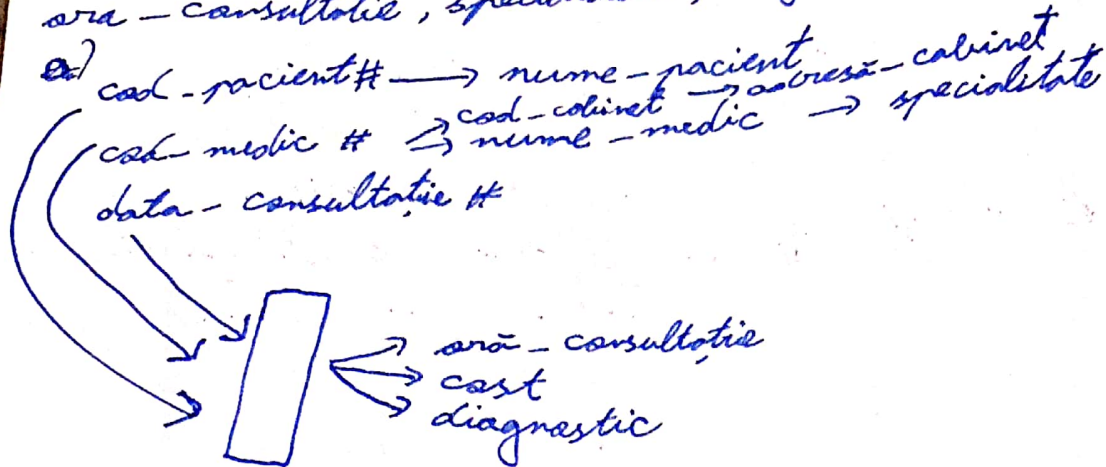 ora - consultatie,
a)
cod - pacient # → nume - pacient
cod - cabinet → adresă - cabinet
cod - medic # → nume - medic → specialitate
data - consultatie #
oră - consultație
cost
diagnostic